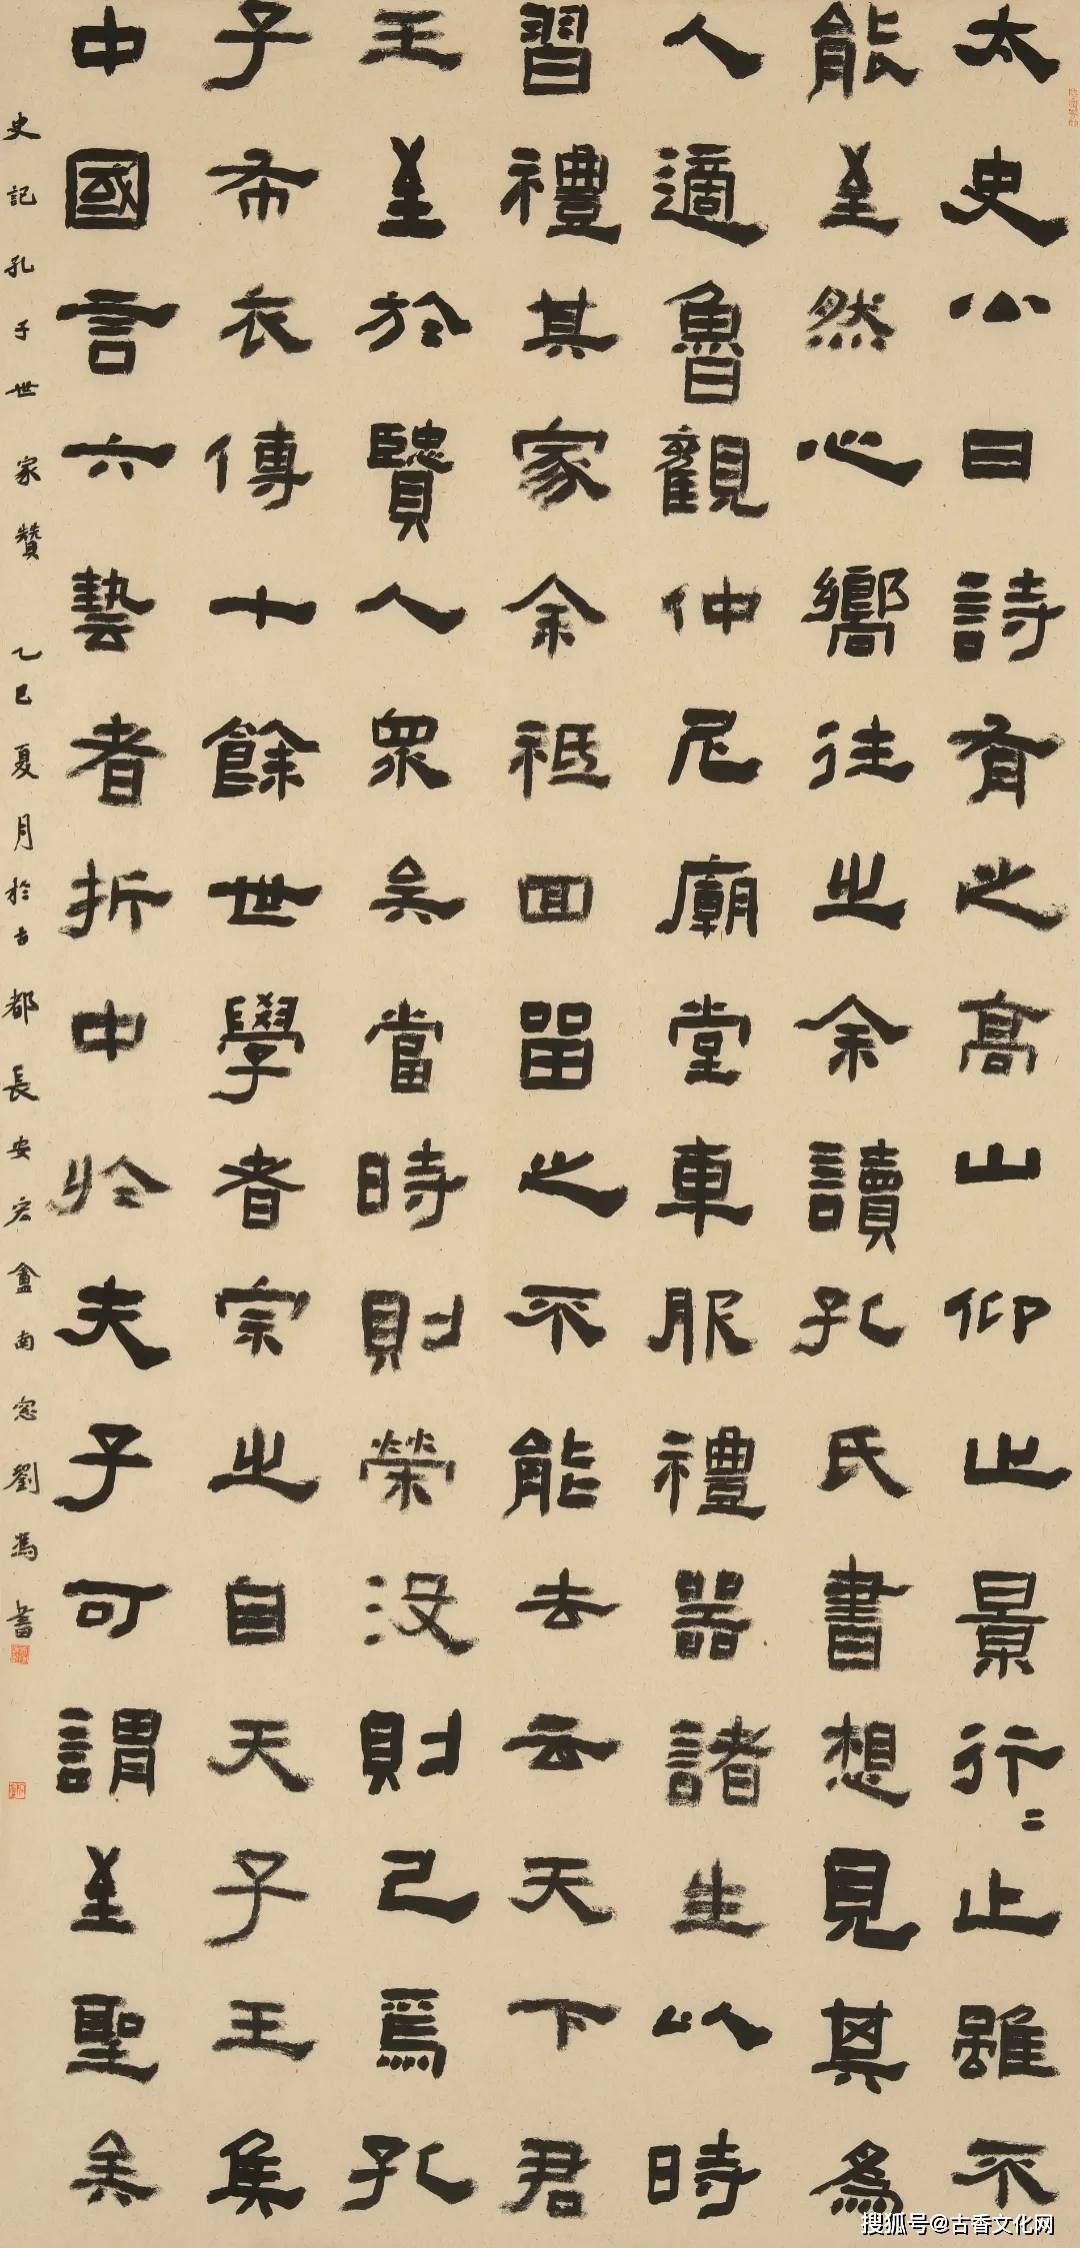 太史公曰詩有之高山仰止景行〻止雖不
能至然心嚮往之余讀孔氏書想見其為
人適魯觀仲尼廟堂車服禮器諸生以時
習禮其家余祗回留之不能去云天下君
王至於賢人眾矣當時則榮沒則已焉孔
子布衣傳十餘世學者宗之自天子王侯
中國言六藝者折中於夫子可謂至聖矣
史記孔子世家贊 乙巳夏月於古都長安宏盦南窓劉馮書
搜狐号@古香文化网